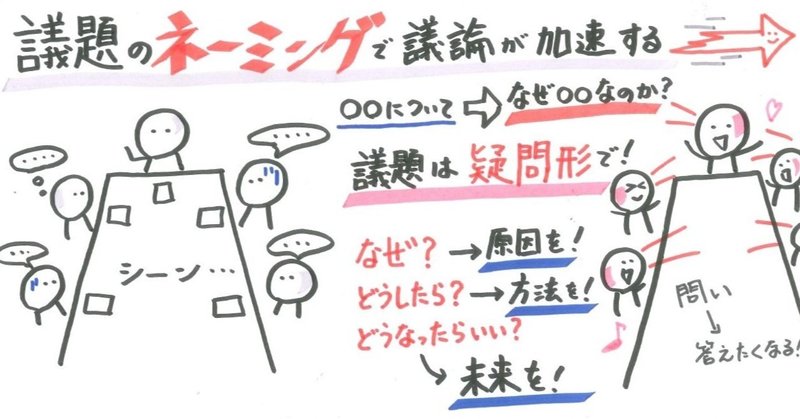 議題のネーミングで議論が加速する
〇〇について⇨なぜ〇〇なのか?
議題は疑問形で!
なぜ?→原因を!
どうしたら?→方法を!
どうなったらいい?
→未来を!
....
....
....
....
シーン…
問い
→答えたくなる!